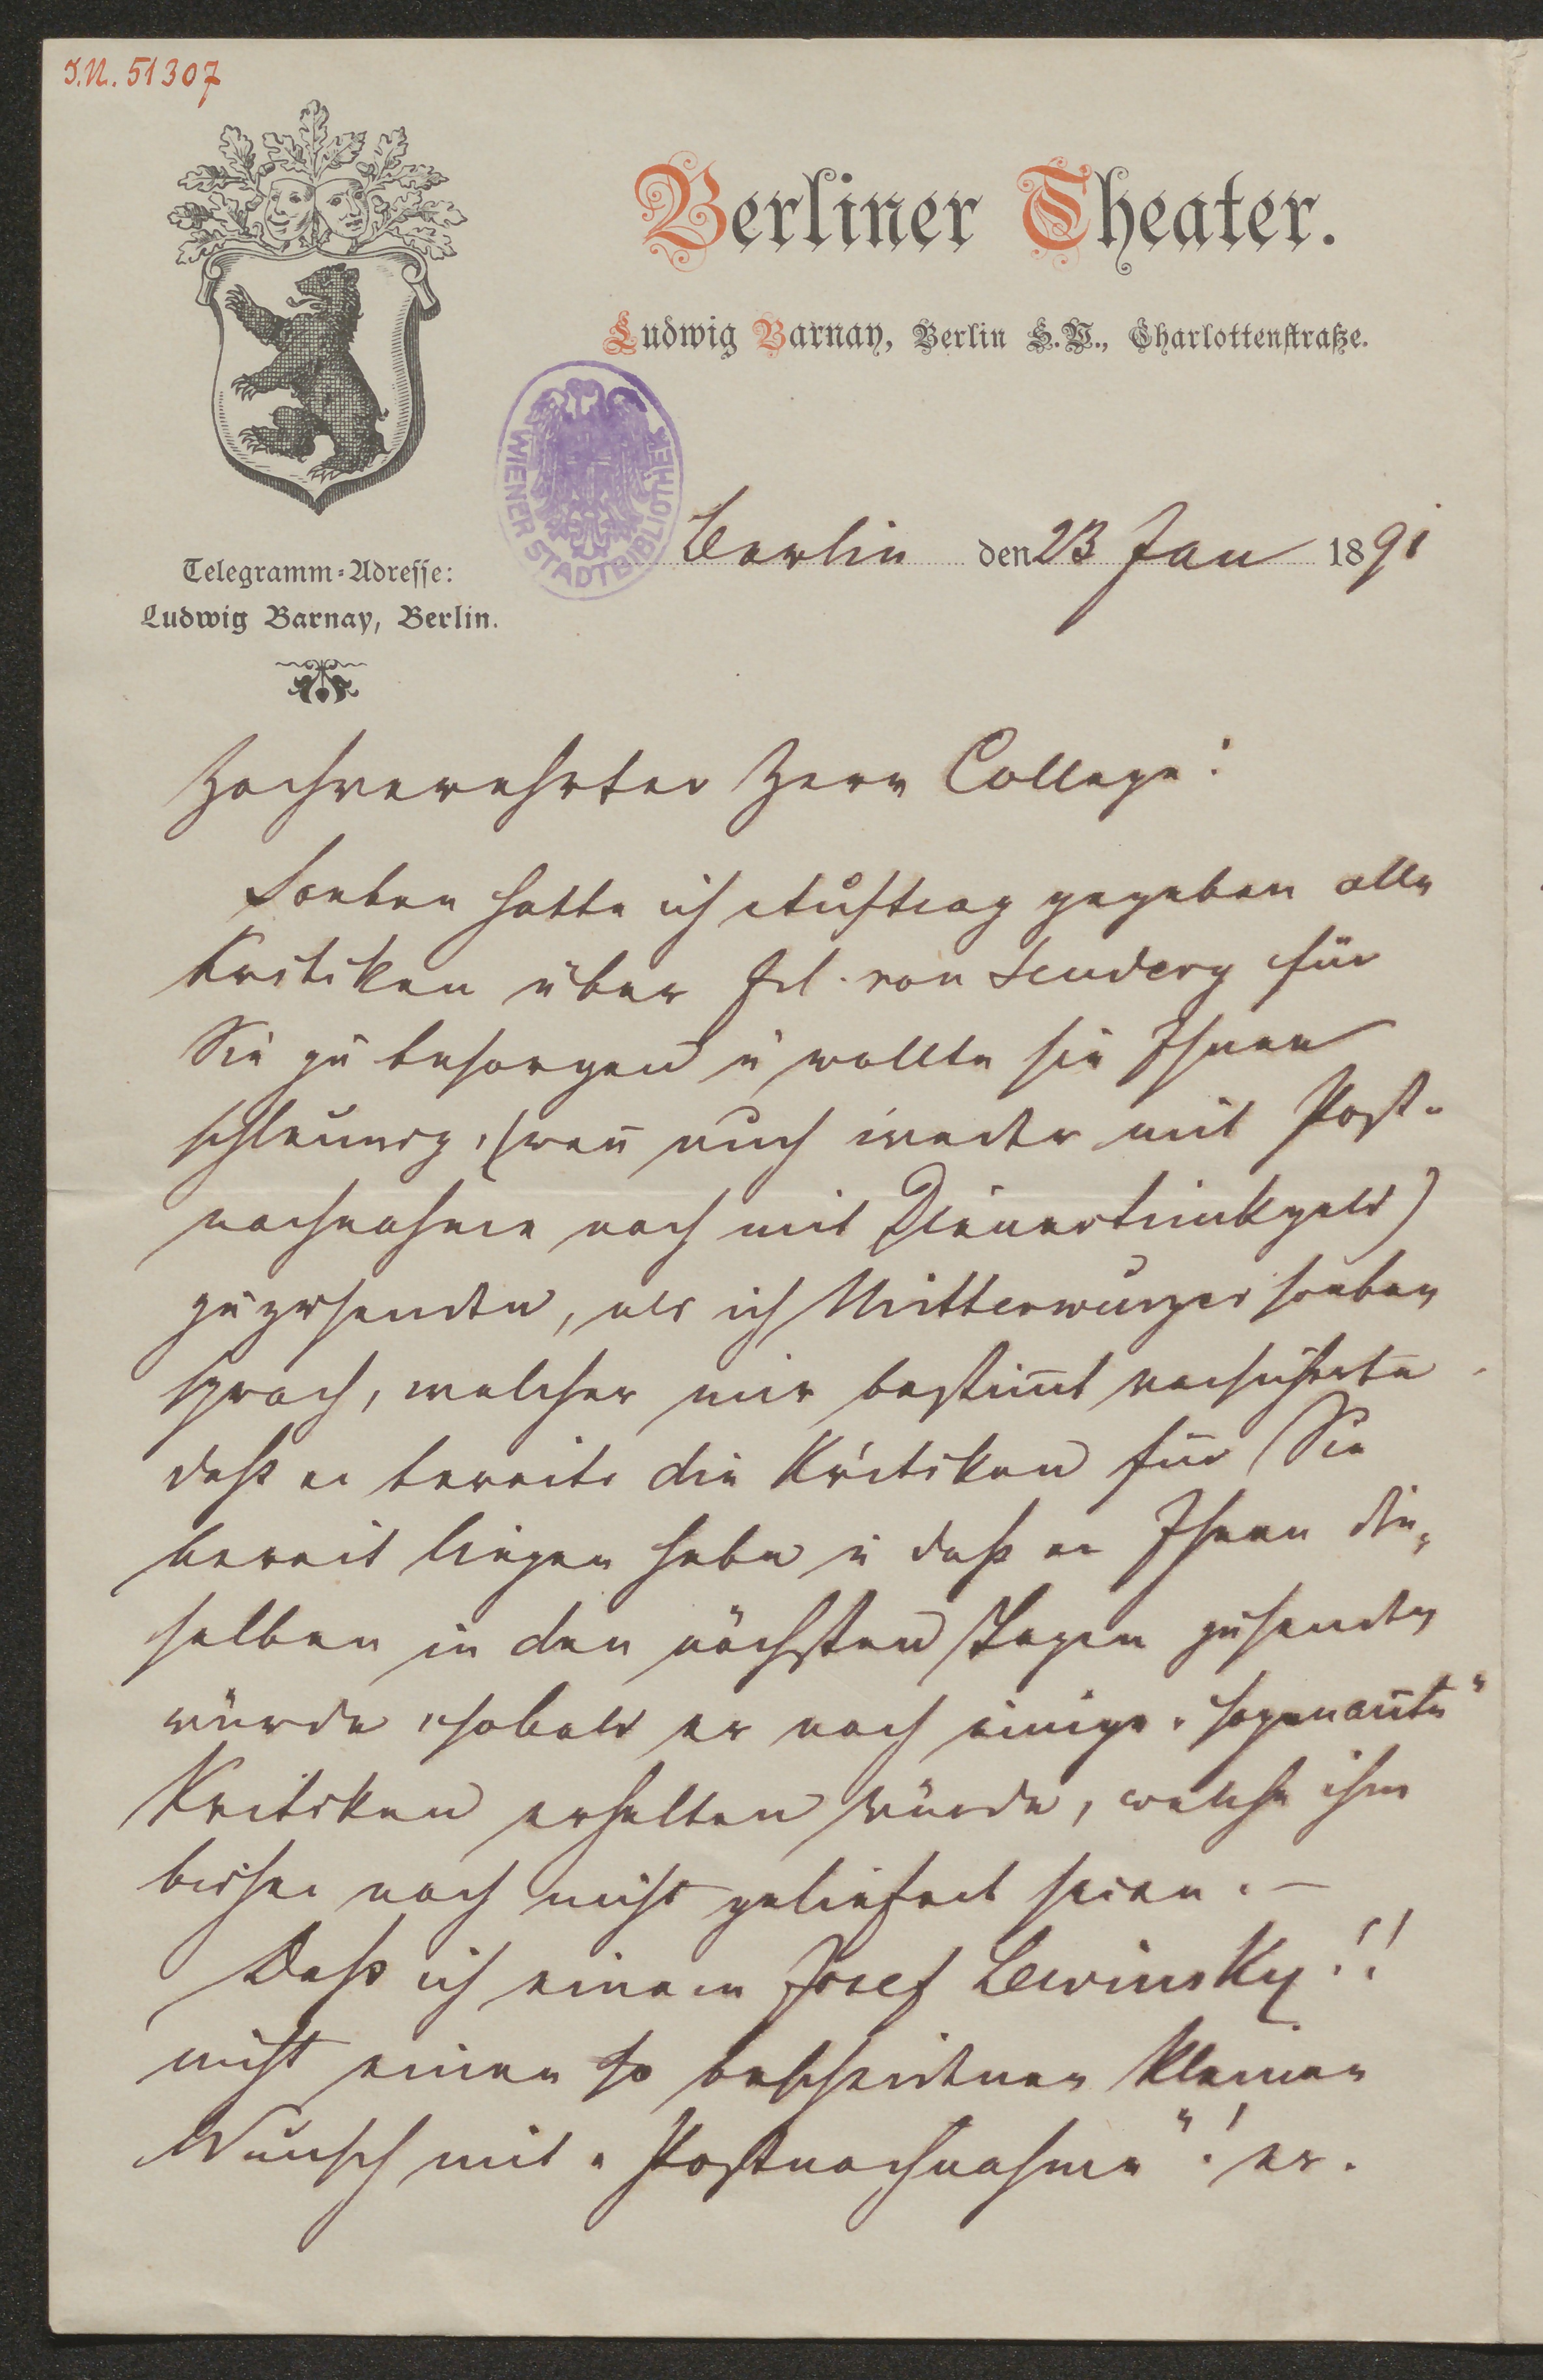 I.N. 51307
Berliner Theater.
Ludwig Barnay, Berlin S.W., Charlottenstraße.
WIENER STADTBIBLIOTHEK
Berlin den 23 Jan 1891
Telegramm-Adresse:
Ludwig Barnay, Berlin.
Hochverehrter Herr College!
Soeben hatte ich Auftrag gegeben alle
Kritiken über Frl. von Scudery für
Sie zu besorgen u wollte sie Ihnen
schleunig, (wen̄ auch weder mit Post-
nachnahme noch mit Dienertrinkgeld)
zuzusenden, als ich Mitterwurzer soeben
sprach, welcher mir bestim̄t versicherte
daß er bereits die Kritiken für Sie
bereit liegen habe u daß er Ihnen die„
selben in den nächsten Tagen zusenden
würde, sobald er noch einige „sogenan̄te“
Kritiken erhalten würde, welche ihm
bisher noch nicht geliefert seien. –
Daß ich einem Josef Lewinsky!!
nicht einen so bescheidenen kleinen
Wunsch mit „Postnachnahme“! er.